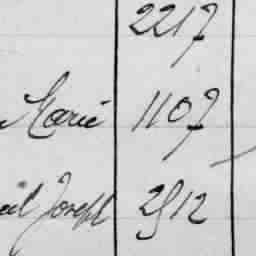 2217
Marie 1107
Joseph 2912